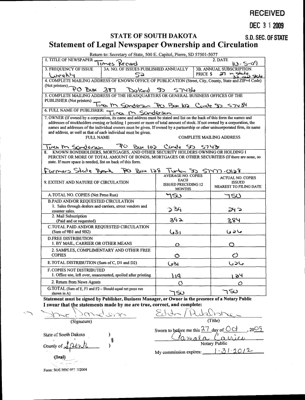 RECEIVED
DEC 31 2009
S.D. SEC. OF STATE
STATE OF SOUTH DAKOTA
Statement of Legal Newspaper Ownership and Circulation
Return to: Secretary of State, 500 E. Capitol, Pierre, SD 57501-5077
1. TITLE OF NEWSPAPER Times Record
2. DATE
3. FREQUENCY OF ISSUE weekly
3A. NO. OF ISSUES PUBLISHED ANNUALLY 52
3B. ANNUAL SUBSCRIPTION PRICE $
4. COMPLETE MAILING ADDRESS OF KNOWN OFFICE OF PUBLICATION (Street, City, County, State and ZIP+4 Code)
(Not printers) PO Box 387 Doland SD 57436
5. COMPLETE MAILING ADDRESS OF THE HEADQUARTERS OR GENERAL BUSINESS OFFICES OF THE
PUBLISHER (Not printers) Tina M Sanderson PO Box 102
6. FULL NAME OF PUBLISHER: Tina M. Sanderson
7. OWNER (If owned by a corporation, its name and address must be stated and list on the back of this form the names and
addresses of stockholders owning or holding 1 percent or more of total amount of stock. If not owned by a corporation, the
names and addresses of the individual owners must be given. If owned by a partnership or other unincorporated firm, its name
and address, as well as that of each individual must be given.
FULL NAME COMPLETE MAILING ADDRESS
Tina M Sanderson PO Box 102
8. KNOWN BONDHOLDERS, MORTGAGES, AND OTHER SECURITY HOLDERS OWNING OR HOLDING 1
PERCENT OR MORE OF TOTAL AMOUNT OF BONDS, MORTGAGES OR OTHER SECURITIES (If there are none, so
state. If more space is needed, list on back of this form.
Farmers State Bank PO Box 128
9. EXTENT AND NATURE OF CIRCULATION
AVERAGE NO. COPIES EACH ISSUED PRECEDING 12 MONTHS
ACTUAL NO. COPIES ISSUED NEAREST TO FILING DATE
A. TOTAL NO. COPIES (Net Press Run) 750 750
B. PAID AND/OR REQUESTED CIRCULATION
1. Sales through dealers and carriers, street vendors and
counter sales. 239 242
2. Mail Subscription
(Paid and or requested) 392 384
C. TOTAL PAID AND/OR REQUESTED CIRCULATION
(Sum of 9B1 and 9B2) 631 626
D. FREE DISTRIBUTION
1. BY MAIL, CARRIER OR OTHER MEANS 0 0
2. SAMPLES, COMPLIMENTARY AND OTHER FREE
COPIES 0 0
E. TOTAL DISTRIBUTION (Sum of C, D1 and D2) 631 626
F. COPIES NOT DISTRIBUTED
1. Office use, left over, unaccounted, spoiled after printing 119 124
2. Return from News Agents 0 0
G. TOTAL (Sum of E, F1 and F2 - Should equal net press run
shown in A) 750 750
Statement must be signed by Publisher, Business Manager, or Owner in the presence of a Notary Public
I swear that the statements made by me are true, correct, and complete:
(Signature) (Title)
State of South Dakota )
County of ) §
(Seal)
Sworn to before me this 27 day of Oct, 2009
Notary Public
My commission expires 1-31-2012